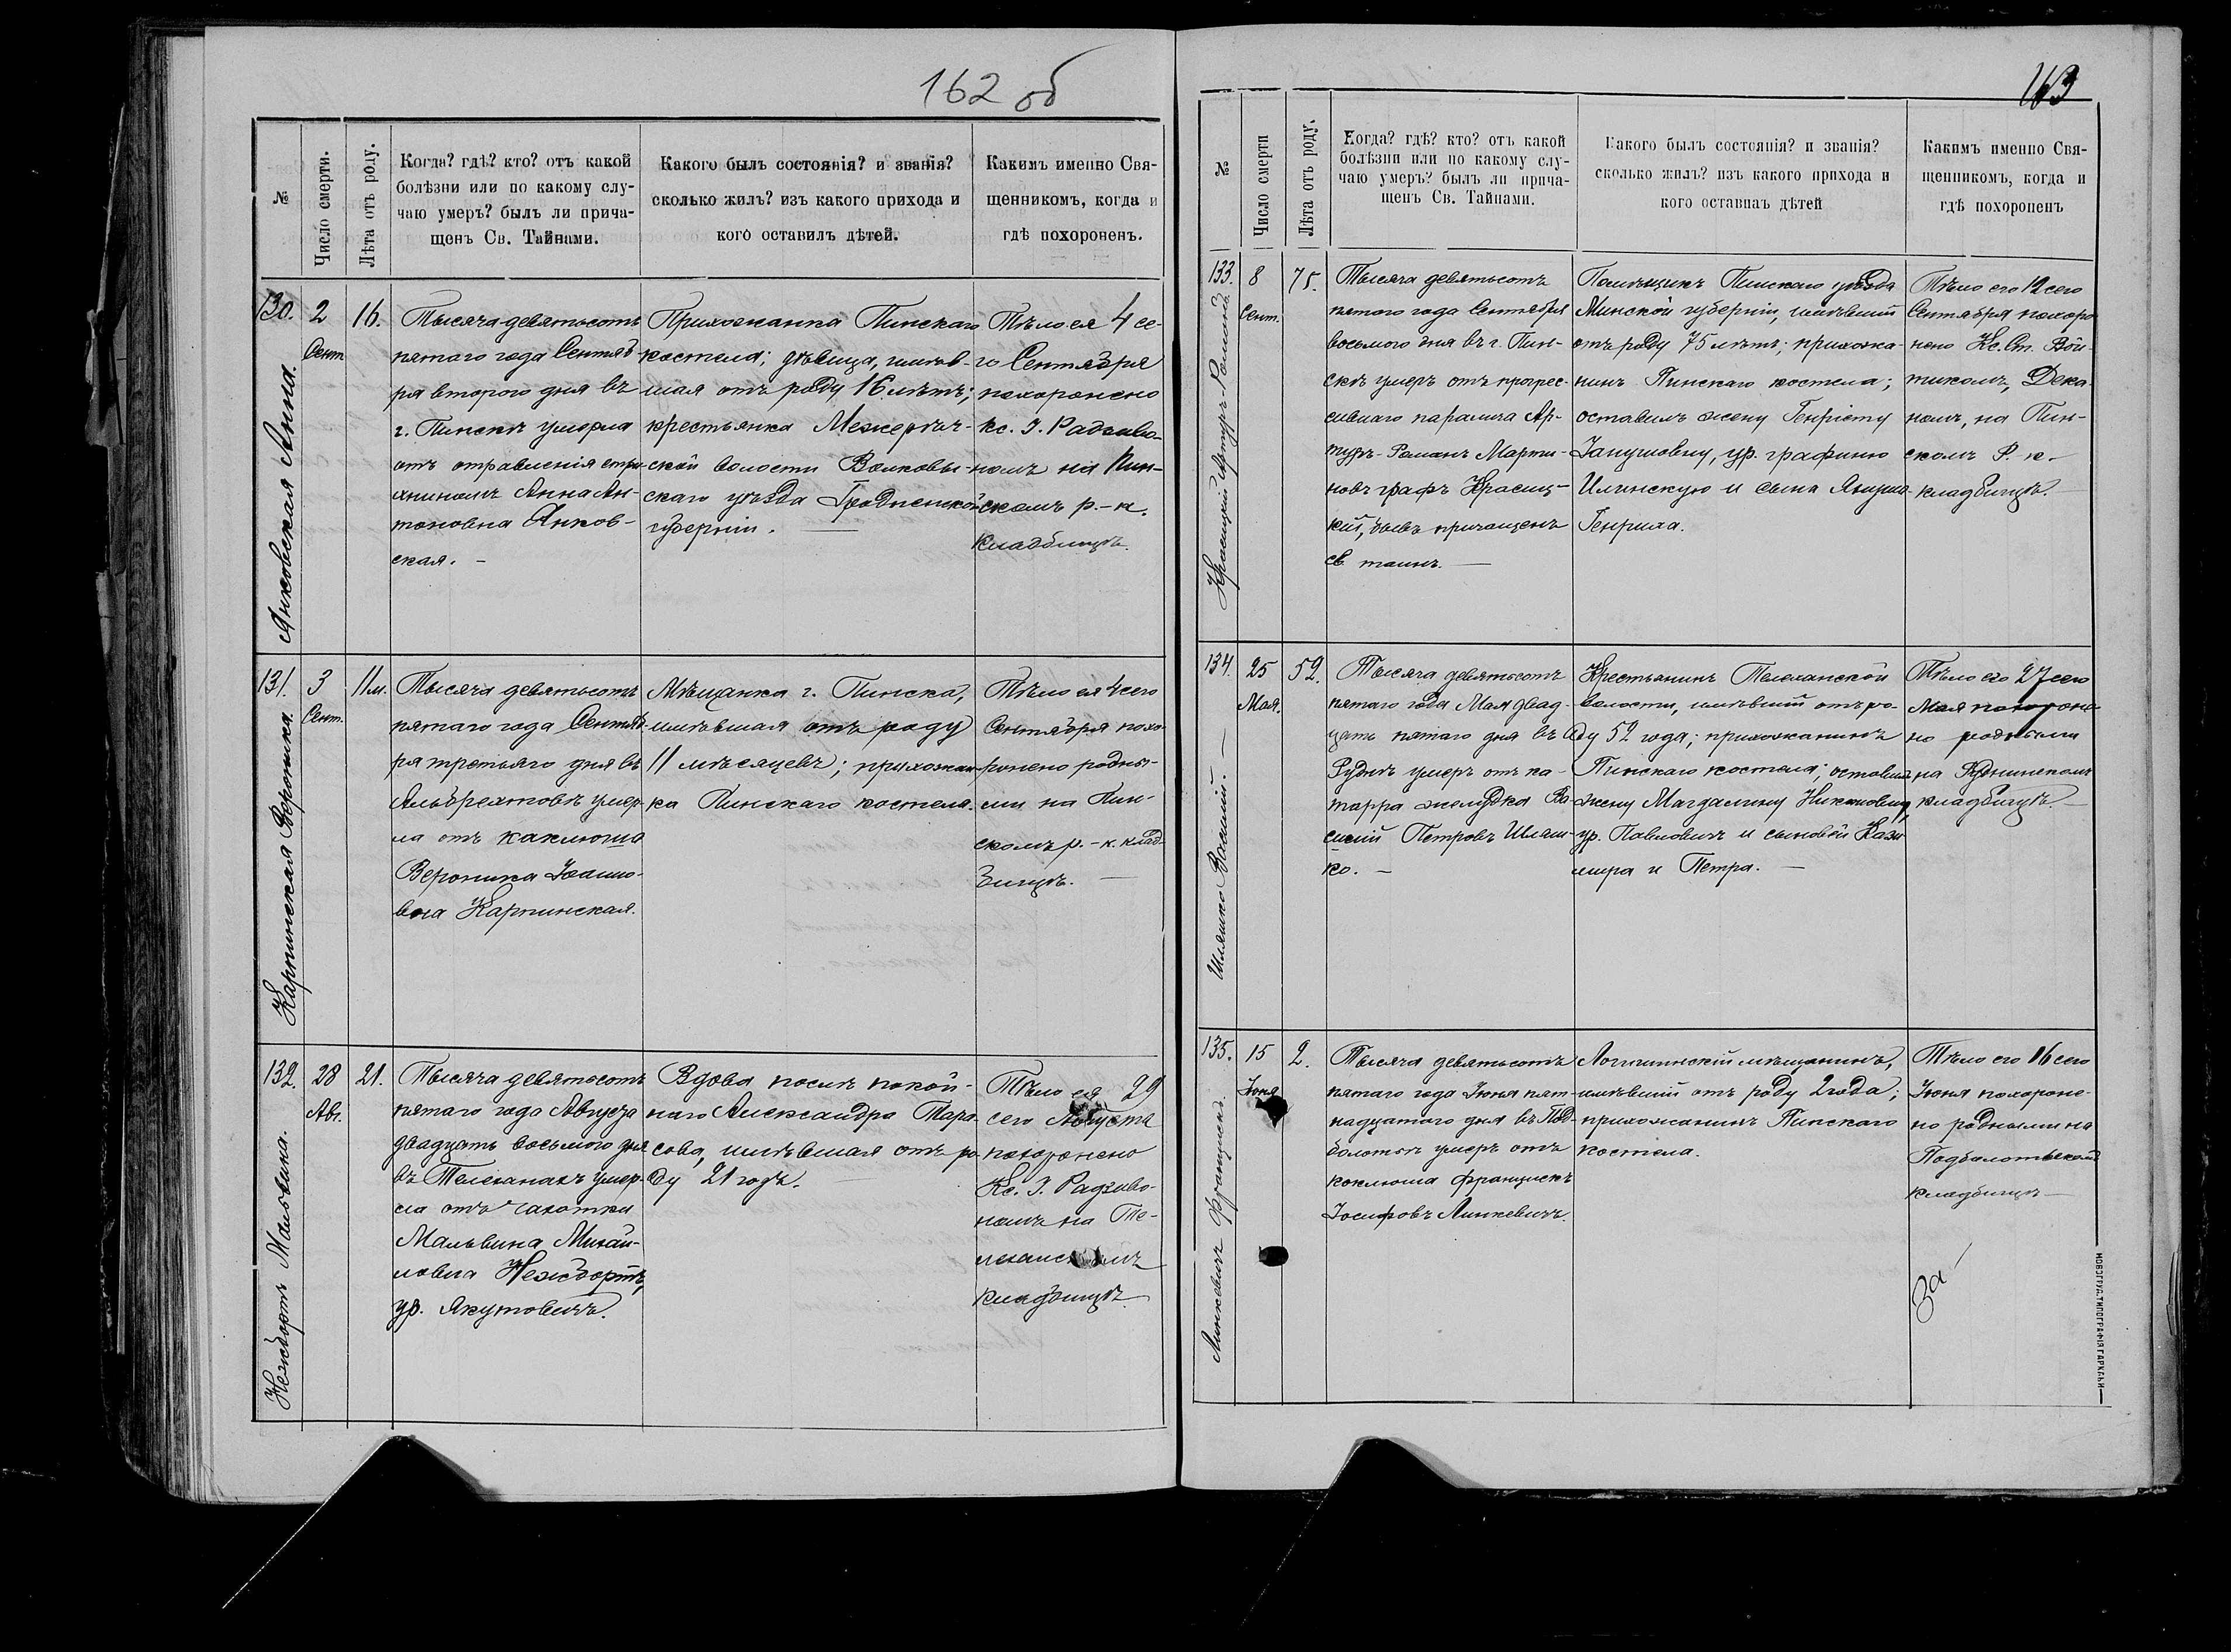 162 об
№
Число смерти.
Лѣта отъ роду.
Когда? гдѣ? кто? отъ какой
болѣзни или по какому слу-
чаю умеръ? былъ ли прича-
щенъ Св. Тайнами.
Какого былъ состоянія? и званія?
сколько жилъ? изъ какого прихода и
кого оставилъ дѣтей.
Какимъ именно Свя-
щенникомъ, когда и
гдѣ похороненъ.
130.
Янковская Анна.
2
Сент
16.
Тысяча девятьсотъ
пятаго года Сентяб-
ря второго дня въ
г. Пинскѣ умерла
отъ отравленія стри-
хниномъ Анна Ан-
тоновна Янков-
ская. -
Прихожанка Пинскаго
костела; дѣвица, имѣв-
шая отъ роду 16 лѣтъ;
крестьянка Межерѣч-
ской волости Волковы-
скаго уѣзда Гродненской
губерніи. —
Тѣло ея 4 се-
го Сентября
похоронено
Кс. І. Радзиво-
номъ на Пин-
скомъ р.-к.
кладбищѣ.
131.
Карпинская Вероника.
3
Сент.
11 м.
Тысяча девятьсотъ
пятаго года Сентяб-
ря третьяго дня въ
Альбрехтовѣ умер-
ла отъ каклюша
Вероника Іоанно-
вна Карпинская.
Мѣщанка г. Пинска,
имѣвшая отъ роду
11 мѣсяцевъ; прихожан-
ка Пинскаго костела.
Тѣло ея 4 сего
Сентября похо-
ронено родны-
ми на Пин-
скомъ р.-к. клад-
бищѣ. —
132.
Нежбортъ Мальвина.
28
Авг.
21.
Тысяча девятьсотъ
пятаго года Августа
двадцать восьмого дня
въ Телеханахъ умер-
ла отъ чахотки
Мальвина Михай-
ловна Нежбортъ,
ур. Якутовичъ.
Вдова послѣ покой-
наго Александра Тара-
сова, имѣвшая отъ ро-
ду 21 годъ. —
Тѣло ея 29
сего Августа
похоронено
Кс. І. Радзиво-
номъ на Те-
леханскомъ
кладбищѣ.
163
№
Число смерти
Лѣта отъ роду.
Когда? гдѣ? кто? отъ какой
болѣзни или по какому слу-
чаю умеръ? былъ ли прича-
щенъ Св. Тайнами.
Какого былъ состоянія? и званія?
сколько жилъ? изъ какого прихода и
кого оставилъ дѣтей
Какимъ именно Свя-
щенникомъ, когда и
гдѣ похороненъ
133.
Красицкій Артуръ-Романъ
8
Сент.
75.
Тысяча девятьсотъ
пятаго года Сентября
восьмого дня въ г. Пин-
скѣ умеръ отъ прогрес-
сивнаго паралича Ар-
туръ-Романъ Марти-
новъ графъ Красиц-
кій, бывъ причащенъ
св. таинъ. —
Помѣщикъ Пинскаго уѣзда
Минской губерніи, имѣвшій
отъ роду 75 лѣтъ; прихожа-
нинъ Пинскаго костела;
оставилъ жену Генріету
Янушовну, ур. графиню
Илинскую и сына Януша-
Генриха.
Тѣло его 12 сего
Сентября похоро-
нено Кс. Ст. Вой-
тикомъ, Дека-
номъ, на Пин-
скомъ Р.-к.
кладбищѣ. —
134.
Шляшко Василій. —
25
Мая.
52.
Тысяча девятьсотъ
пятаго года Мая двад-
цать пятаго дня въ
Руднѣ умеръ отъ ка-
тарра желудка Ва-
силій Петровъ Шляш-
ко. —
Крестьянинъ Телеханской
волости, имѣвшій отъ ро-
ду 52 года; прихожанинъ
Пинскаго костела; оставилъ
жену Магдалину Никановну,
ур. Павловичъ и сыновей Кази-
мира и Петра. —
Тѣло его 27 сего
Мая похороне-
но родными
на Руднинскомъ
кладбищѣ. —
135.
Линкевичъ Францискъ.
15
Іюня
2.
Тысяча девятьсотъ
пятаго года Іюня пят-
надцатого дня въ Под-
болотьѣ умеръ отъ
коклюша Францискъ
Іосифовъ Линкевичъ.
Логишинскій мѣщанинъ,
имѣвшій отъ роду 2 года;
прихожанинъ Пинскаго
костела.
Тѣло его 16 сего
Іюня похороне-
но родными на
Подболотьскомъ
кладбищѣ —
За-
НОВОГРУД. ТИПОГРАФІЯ ГАРКАВИ